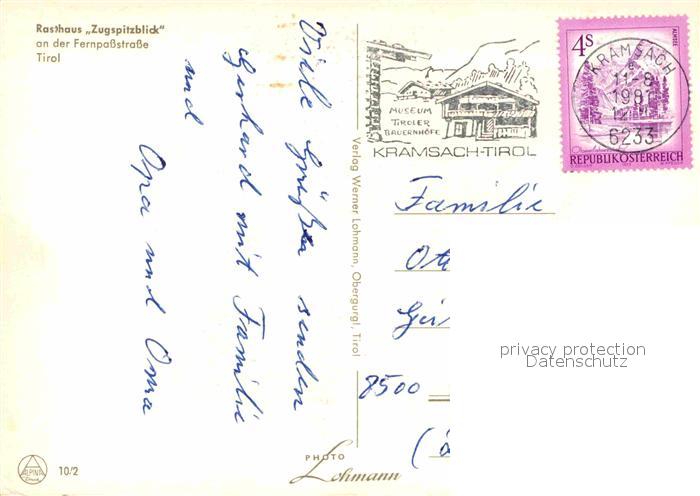 Rasthaus „Zugspitzblick"
an der Fernpaßstraße
Tirol
Viele Grüße senden
Gerhard mit Familie
und
Opa und Oma
MUSEUM
TIROLER
BAUERNHÖFE
KRAMSACH-TIROL
KRAMSACH
11-8
1981
6233
4S
ALMSEE
REPUBLIK ÖSTERREICH
Verlag Werner Lohmann, Obergurgl, Tirol
Familie
Ott
8500
privacy protection
Datenschutz
ALPINA
10/2
PHOTO
Lohmann